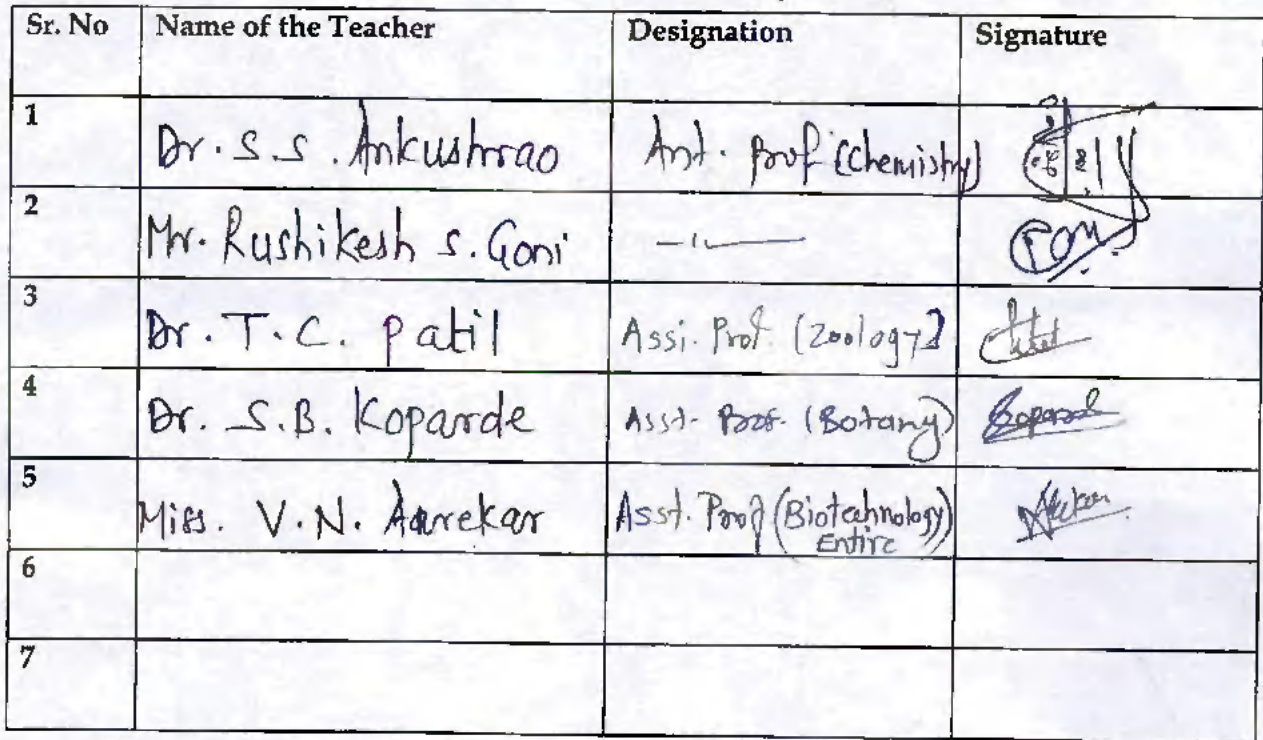 Sr. No Name of the Teacher Designation Signature
1 Dr. S. S. Ankushrao Asst. Prof (Chemistry)
2 Mr. Rushikesh S. Goni —〃—
3 Dr. T. C. Patil Assi. Prof. (Zoology)
4 Dr. S.B. Koparde Asst. Prof. (Botany) Koparde
5 Miss. V. N. Aarekar Asst. Prof (Biotechnology)
Entire
6
7